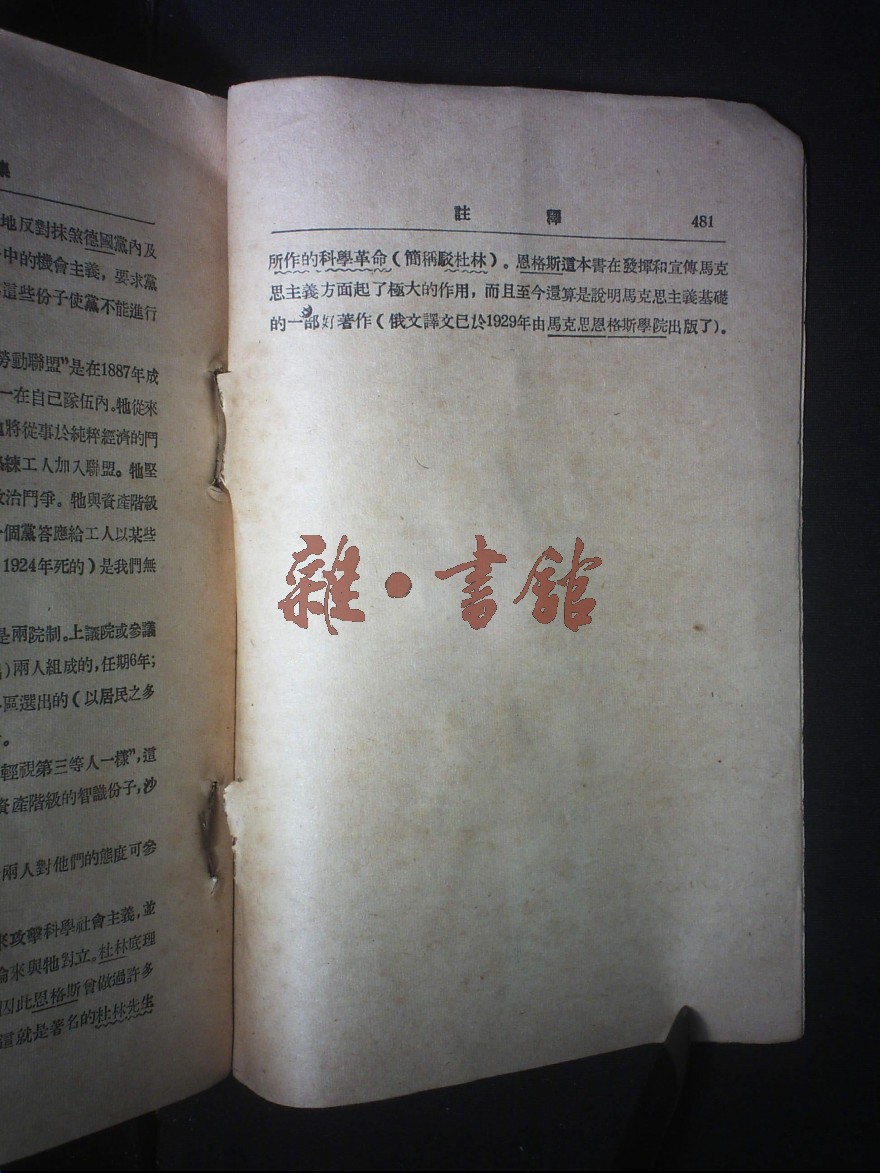 地反對抹煞德國黨內及
中的機會主義，要求黨
這些份子使黨不能進行
勞動聯盟"是在1887年成
一在自己隊伍內。牠從來
將從事於純粹經濟的鬥
練工人加入聯盟。牠堅
政治鬥爭。牠與資產階級
個黨答應給工人以某些
1924年死的）是我們無
是兩院制。上議院或參議
）兩人組成的，任期6年；
區選出的（以居民之多
。
輕視第三等人一樣"，這
資產階級的智識份子，沙
兩人對他們的態度可參
來攻擊科學社會主義，並
論來與牠對立。杜林底理
因此恩格斯曾做過許多
這就是著名的杜林先生
註 釋 481
所作的科學革命（簡稱駁杜林）。恩格斯這本書在發揮和宣傳馬克
思主義方面起了極大的作用，而且至今還算是說明馬克思主義基礎
的一部好著作（俄文譯文已於1929年由馬克思恩格斯學院出版了）。
雜·書館